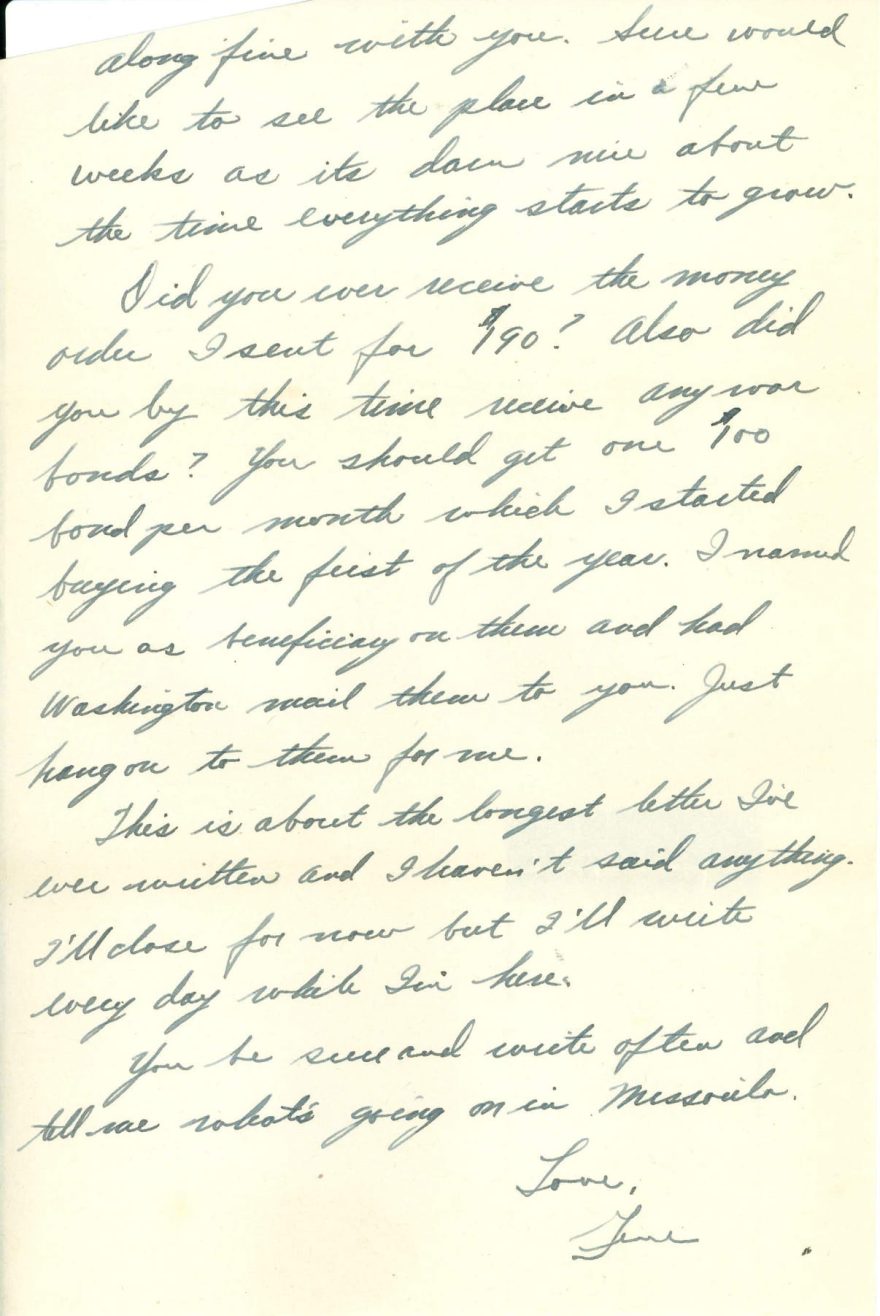 along fine with you. Sure would
like to see the place in a few
weeks as its darn nice about
the time everything starts to grow.
Did you ever receive the money
order I sent for $190? Also did
you by this time receive any war
bonds? You should get one $100
bond per month which I started
buying the first of the year. I named
you as beneficiary on them and had
Washington mail them to you. Just
hang on to them for me.
This is about the longest letter I've
ever written and I haven't said anything.
I'll close for now but I'll write
every day while I'm here.
You be sure and write often and
tell me what's going on in Missoula.
Love,
Gene